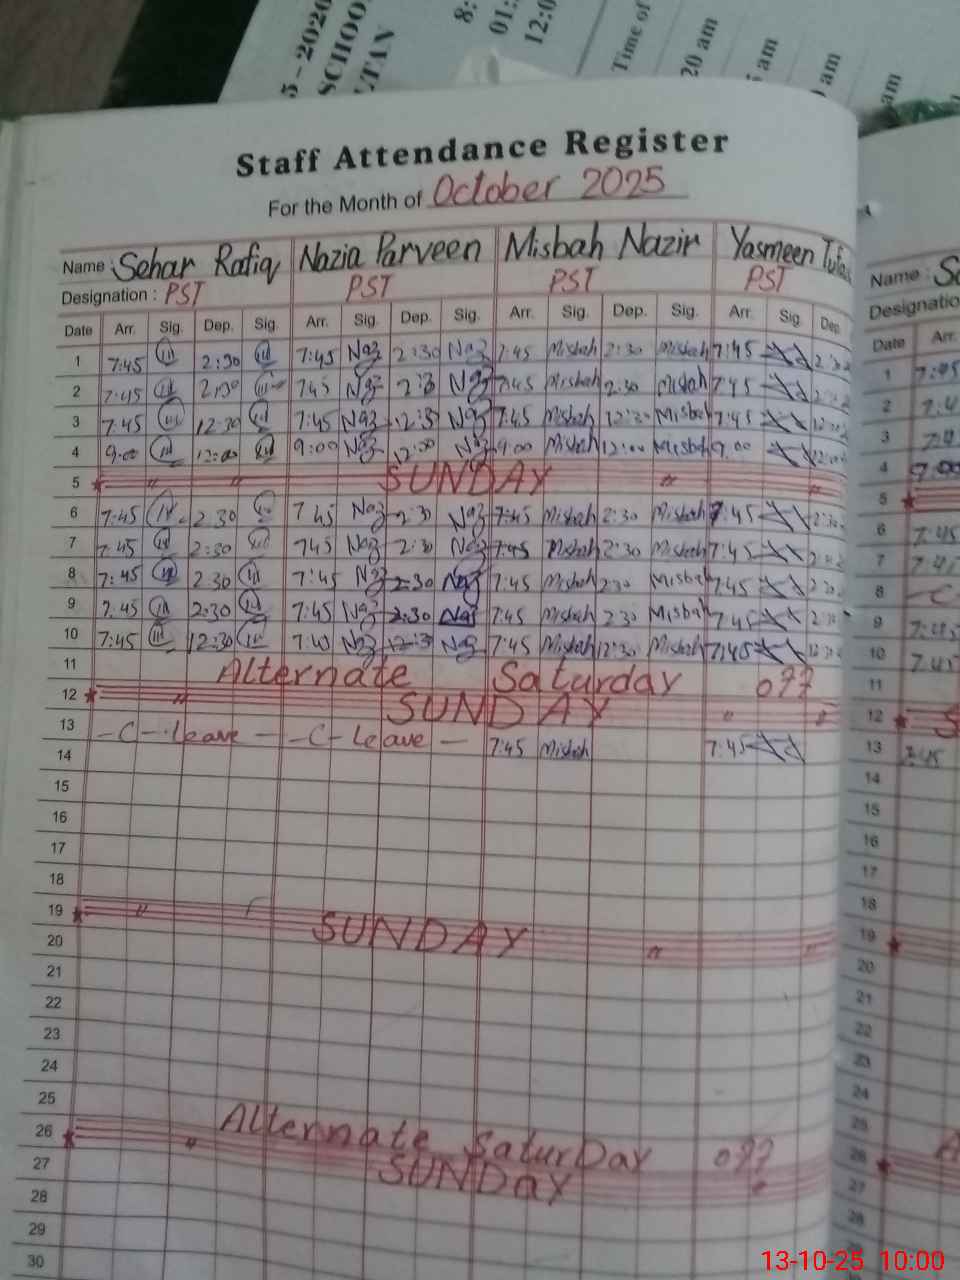 5 - 2020
SCHOO
LTAN
8:
01:
12:0
Time of
20 am
am
am
am
Staff Attendance Register
For the Month of October 2025
Name : Sehar Rafiq Nazia Parveen Misbah Nazir Yasmeen
Designation : PST PST PST PST
Date Arr. Sig. Dep. Sig. Arr. Sig. Dep. Sig. Arr. Sig. Dep. Sig. Arr. Sig. Dep.
1 7:45 2:30 7:45 Naz 2:30 Naz 7:45 Misbah 2:30 Misbah 7:45
2 7:45 2:30 745 Naz 2:3 Naz 7:45 Misbah 2:30 Misbah 7:45
3 7:45 12:30 7:45 Naz 12:3 Naz 7:45 Misbah 12:30 Misbah 7:45
4 9:00 12:00 9:00 Naz 12:00 Naz 9:00 Misbah 12:00 Misbah 9:00 12:00
5 " " SUNDAY " "
6 7:45 2:30 7:45 Naz 2:30 Naz 7:45 Misbah 2:30 Misbah 7:45 2:30
7 7:45 2:30 745 Naz 2:30 Naz 7:45 Misbah 2:30 Misbah 7:45
8 7:45 2:30 7:45 Naz 2:30 Naz 7:45 Misbah 2:30 Misbah 7:45
9 7:45 2:30 7:45 Naz 2:30 Naz 7:45 Misbah 2:30 Misbah 7:45
10 7:45 12:30 7:40 Naz 12:3 Naz 7:45 Misbah 12:30 Misbah 7:45
11 Alternate Saturday off
12 " SUNDAY " "
13 - C - Leave - - C - Leave - 7:45 Misbah 7:45
14
15
16
17
18
19 " SUNDAY "
20
21
22
23
24
25 Alternate SaturDay off
26 " SUNDay "
27
28
29
30
Name : S
Designatio
Date Arr.
1 7:45
2 7:4
3 7:4
4 9:00
5
6 7:45
7 7:45
8 - C
9 7:45
10 7:45
11
12 S
13 7:45
14
15
16
17
18
19
20
21
22
23
24
25 A
26
27
28
13-10-25 10:00